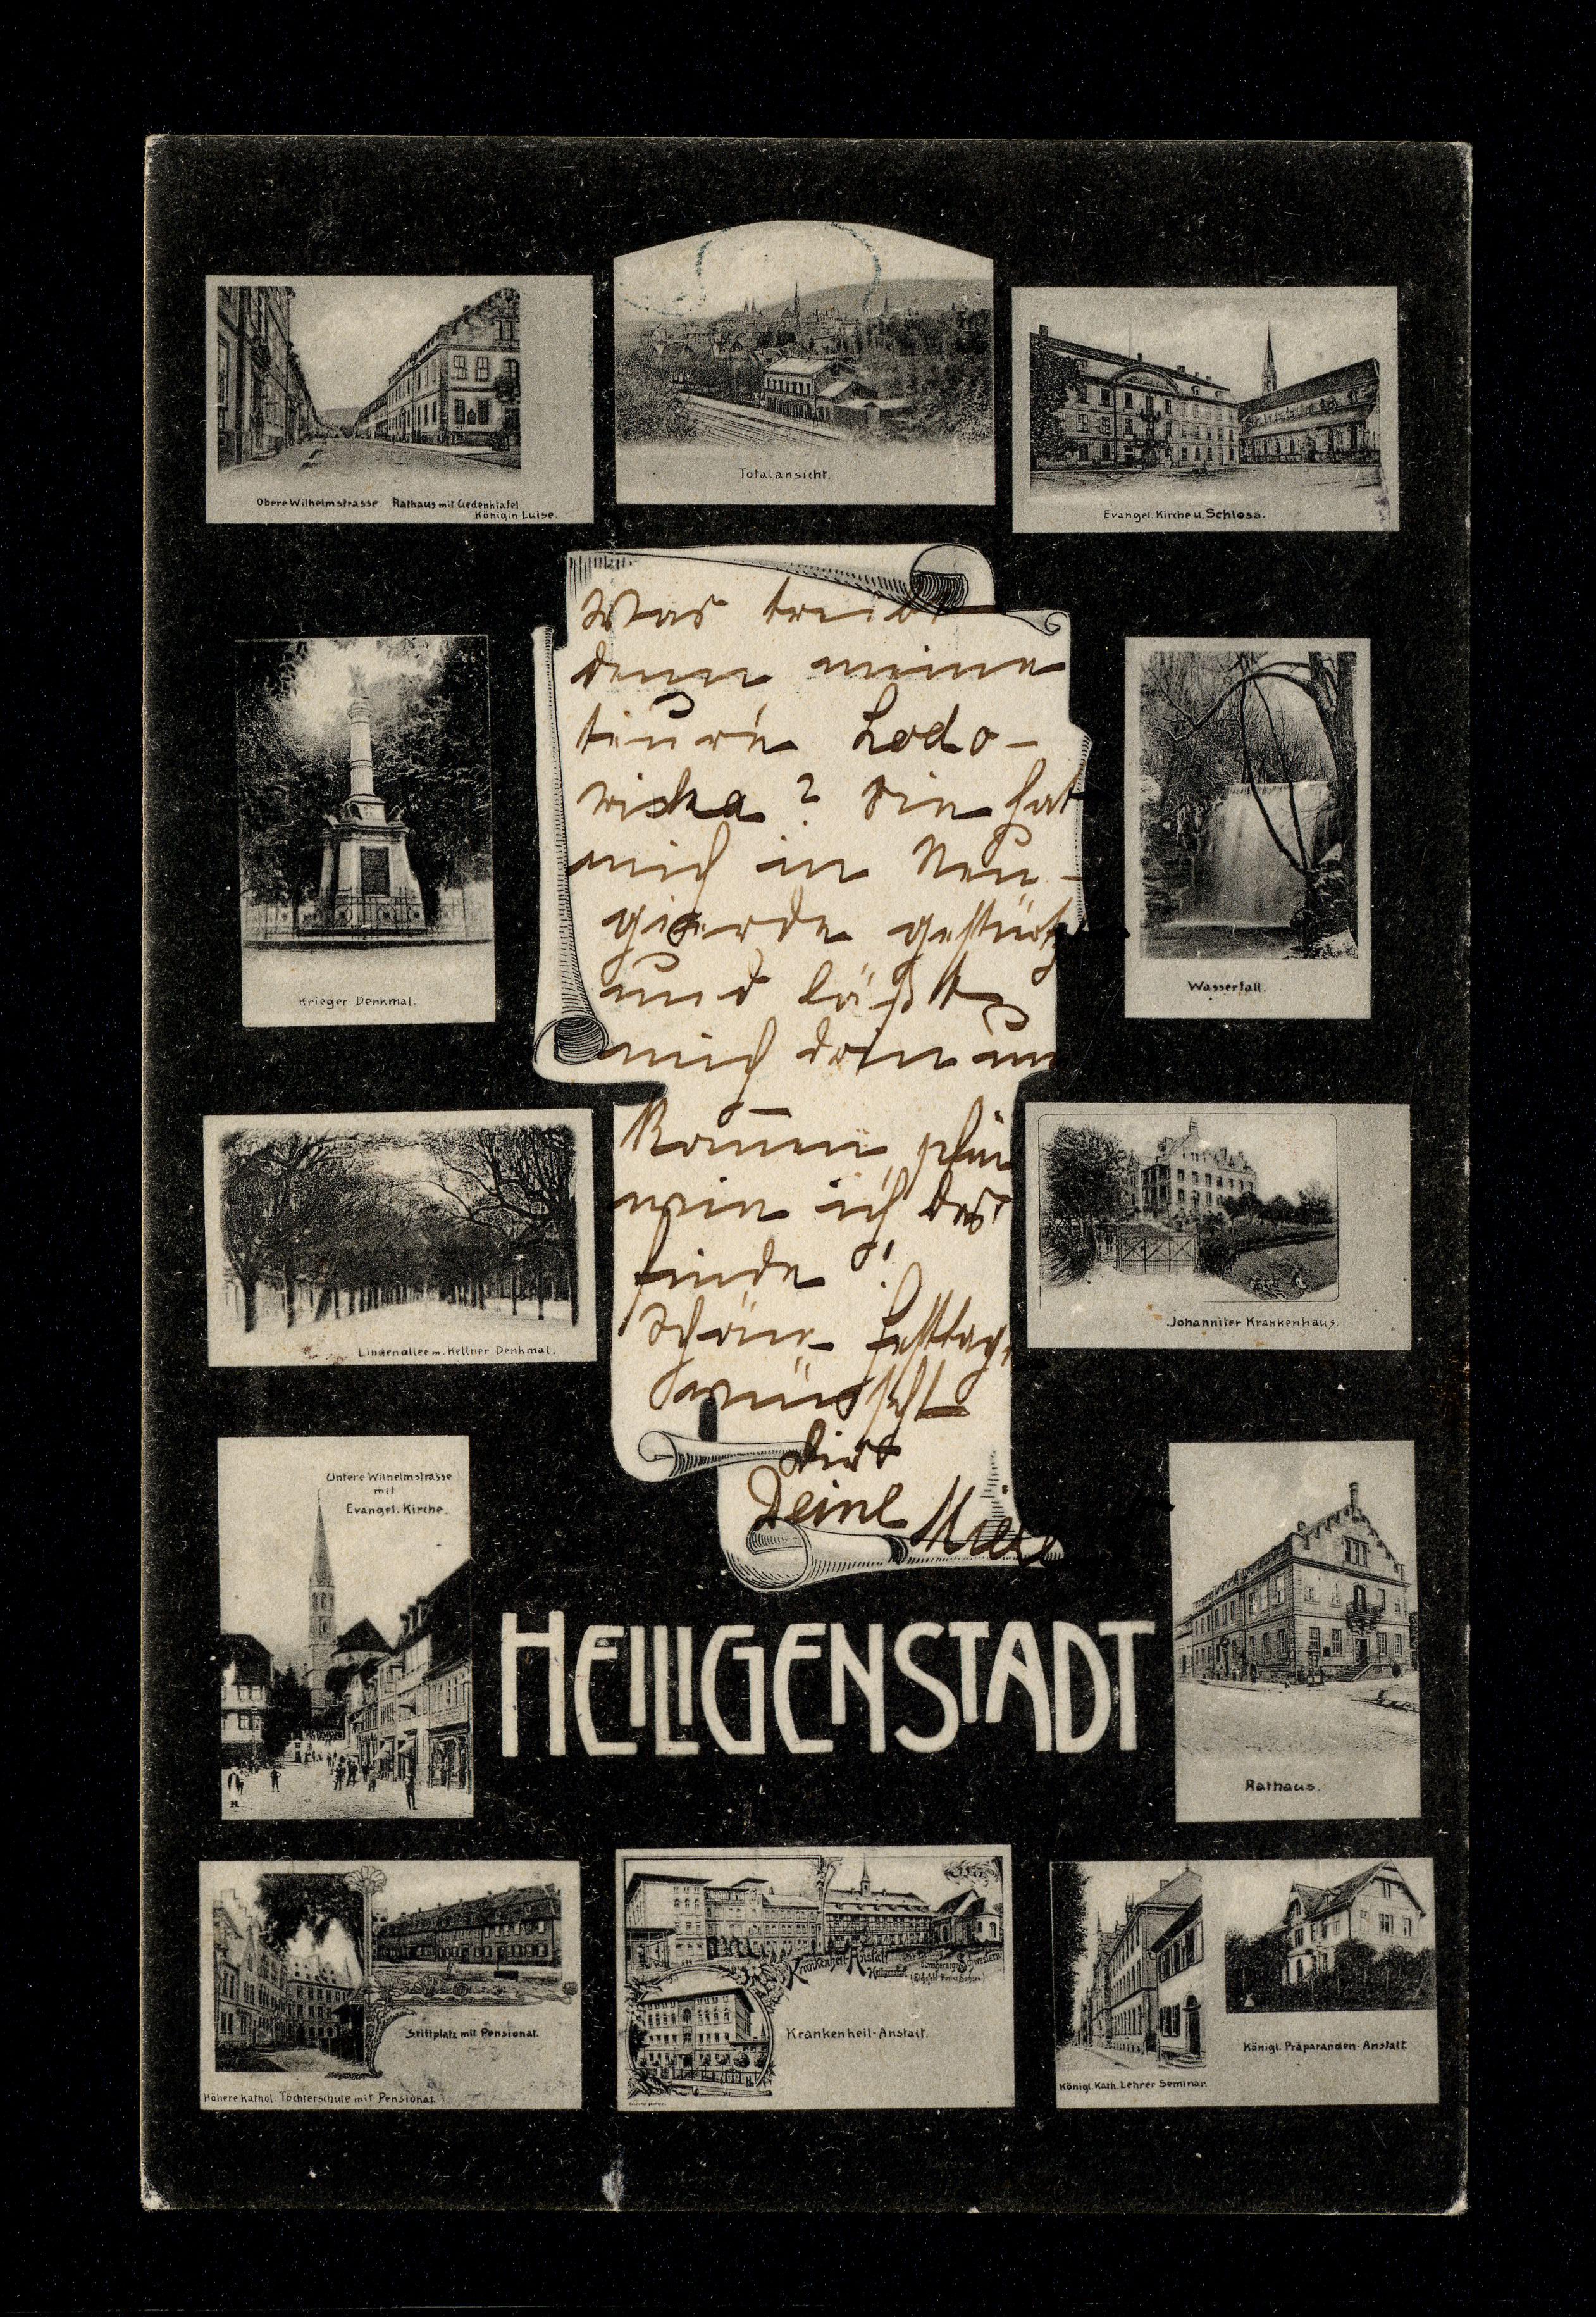 Obere Wilhelmstrasse Rathaus mit Gedenktafel
Königin Luise.
Totalansicht.
Evangel. Kirche u. Schloss.
Was treibt
denn meine
teure Lodo-
wiska? Sie hat
mich in Neu-
gierde gestürtz
und läßt
mich drin um
kom̅en, schen
wie ich das
finde!
Schöne Festtag.
wünscht
Dir
Deine
Krieger-Denkmal.
Wasserfall.
Lindenallee m. Kellner Denkmal.
Johanniter Krankenhaus.
Untere Wilhelmstrasse
mit
Evangel. Kirche.
HEILIGENSTADT
Rathaus.
Stiftplatz mit Pensionat.
Höhere kathol. Töchterschule mit Pensionat.
Krankenheil-Anstalt
Heiligenstadt
(Eichsfeld Provinz Sachsen)
Krankenheil-Anstalt.
Königl. Präparanden-Anstalt
Königl. Kath. Lehrer Seminar.